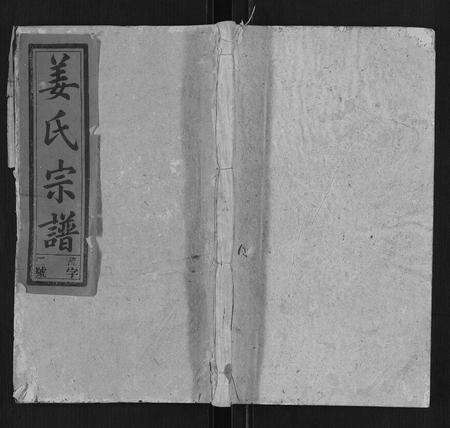 姜氏宗譜
字
號